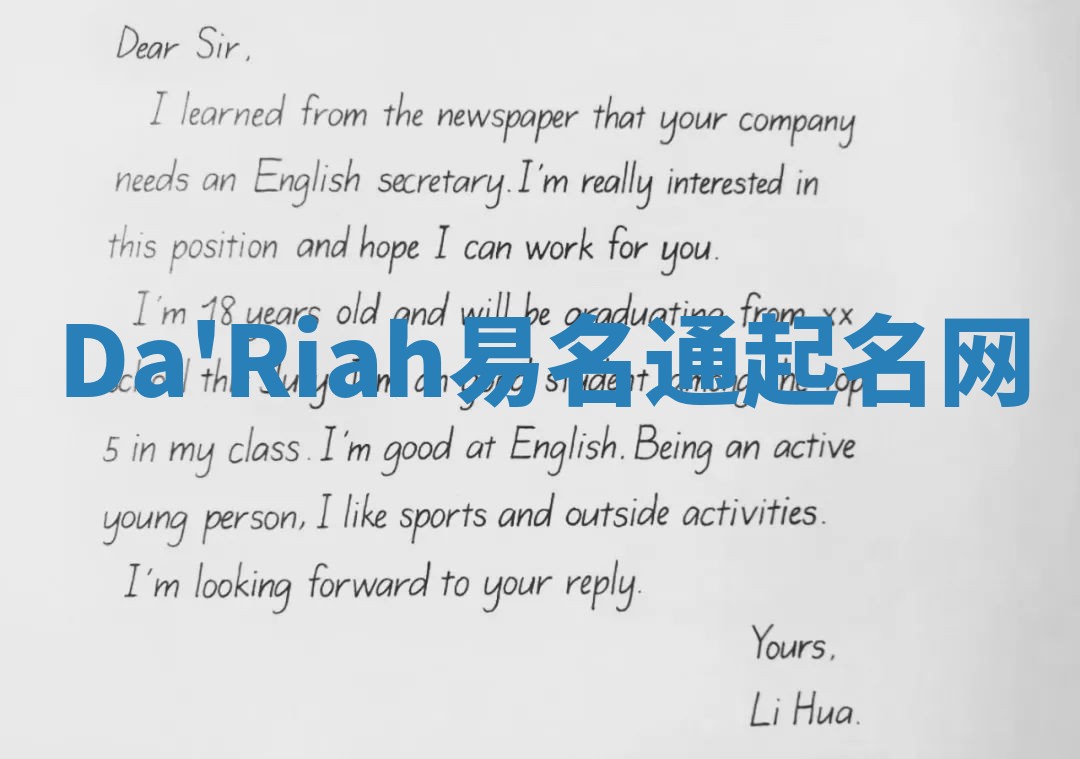 Dear Sir,
I learned from the newspaper that your company
needs an English secretary. I'm really interested in
this position and hope I can work for you.
I'm 18 years old and will be graduating from xx
Da'Riah易名通起名网
school this July. I'm an good student, among the top
5 in my class. I'm good at English. Being an active
young person, I like sports and outside activities.
I'm looking forward to your reply.
Yours,
Li Hua.